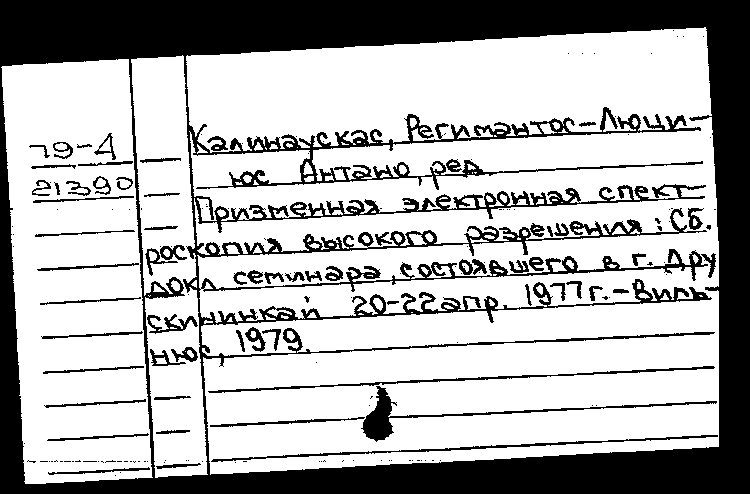 79-4
21390
Калинаускас, Регимантос-Люци-
юс Антано, ред.
Призменная электронная спект-
роскопия высокого разрешения: Сб.
докл. семинара, состоявшего в г. Дру
скининкай 20-22 апр. 1977 г. - Виль-
нюс, 1979.